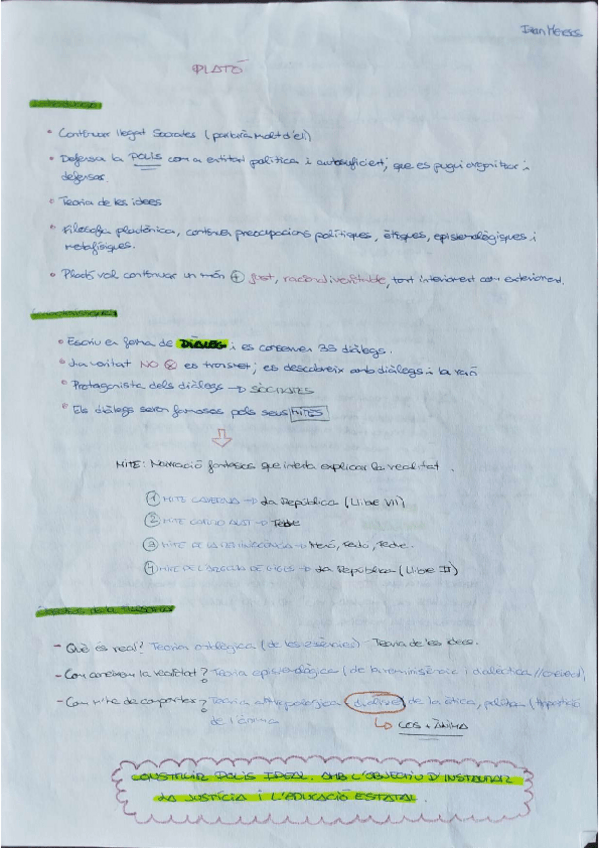 PLATÓ
Introducció
• Continuar llegat Socrates (parlarà molt d'ell)
• Defensa la POLIS com a entitat política i autosuficient, que es pugui organitzar i
defensar.
• Teoria de les idees
• Filosofia platònica, continua preocupacions polítiques, ètiques, epistemològiques i
metafísiques.
• Plató vol continuar un món + just, racional i veritable, tant interiorment com exteriorment.
• Escriu en forma de DIÀLEG i es conserven 35 diàlegs.
• La veritat NO es transmet; es descobreix amb diàlegs i la raó
• Protagonista dels diàlegs → SÒCRATES
• Els diàlegs seran famosos pels seus MITES
MITE: Narració fantasiosa que intenta explicar la realitat.
1 MITE CAVERNA → La República (Llibre VII)
2 MITE → Fedre
3 MITE DE LA REMINISCÈNCIA → Menó, Fedó, Fedre.
4 MITE DE L'ANELL DE GIGES → La República (Llibre II)
- Què és real? Teoria ontològica (de les essències) - Teoria de les idees.
- Com coneixem la realitat? Teoria epistemològica (de la reminiscència i dialèctica //
- Com de comportar? Teoria antropològica (dualisme) de la ètica, política (tripartició
de l'ànima
↳ COS + ÀNIMA
CONSTRUIR POLIS IDEAL, AMB L'OBJECTIU D'INSTAURAR
LA JUSTÍCIA I L'EDUCACIÓ ESTATAL.